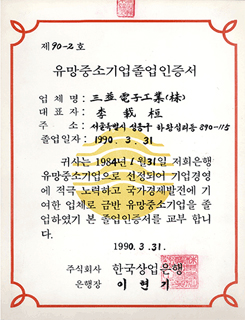 제90-2호
유망중소기업졸업인증서
업체명: 三益電子工業(株)
대표자: 李載桓
주소: 서울특별시 성동구 하왕십리동 890-115
졸업일자: 1990. 3. 31
귀사는 1984년 1월 31일 저희은행
유망중소기업으로 선정되어 기업경영
에 적극 노력하고 국가경제발전에 기
여한 업체로 금반 유망중소기업을 졸
업하였기 본 졸업인증서를 교부 합니
다.
1990. 3. 31.
주식회사 한국상업은행
은행장 이현기